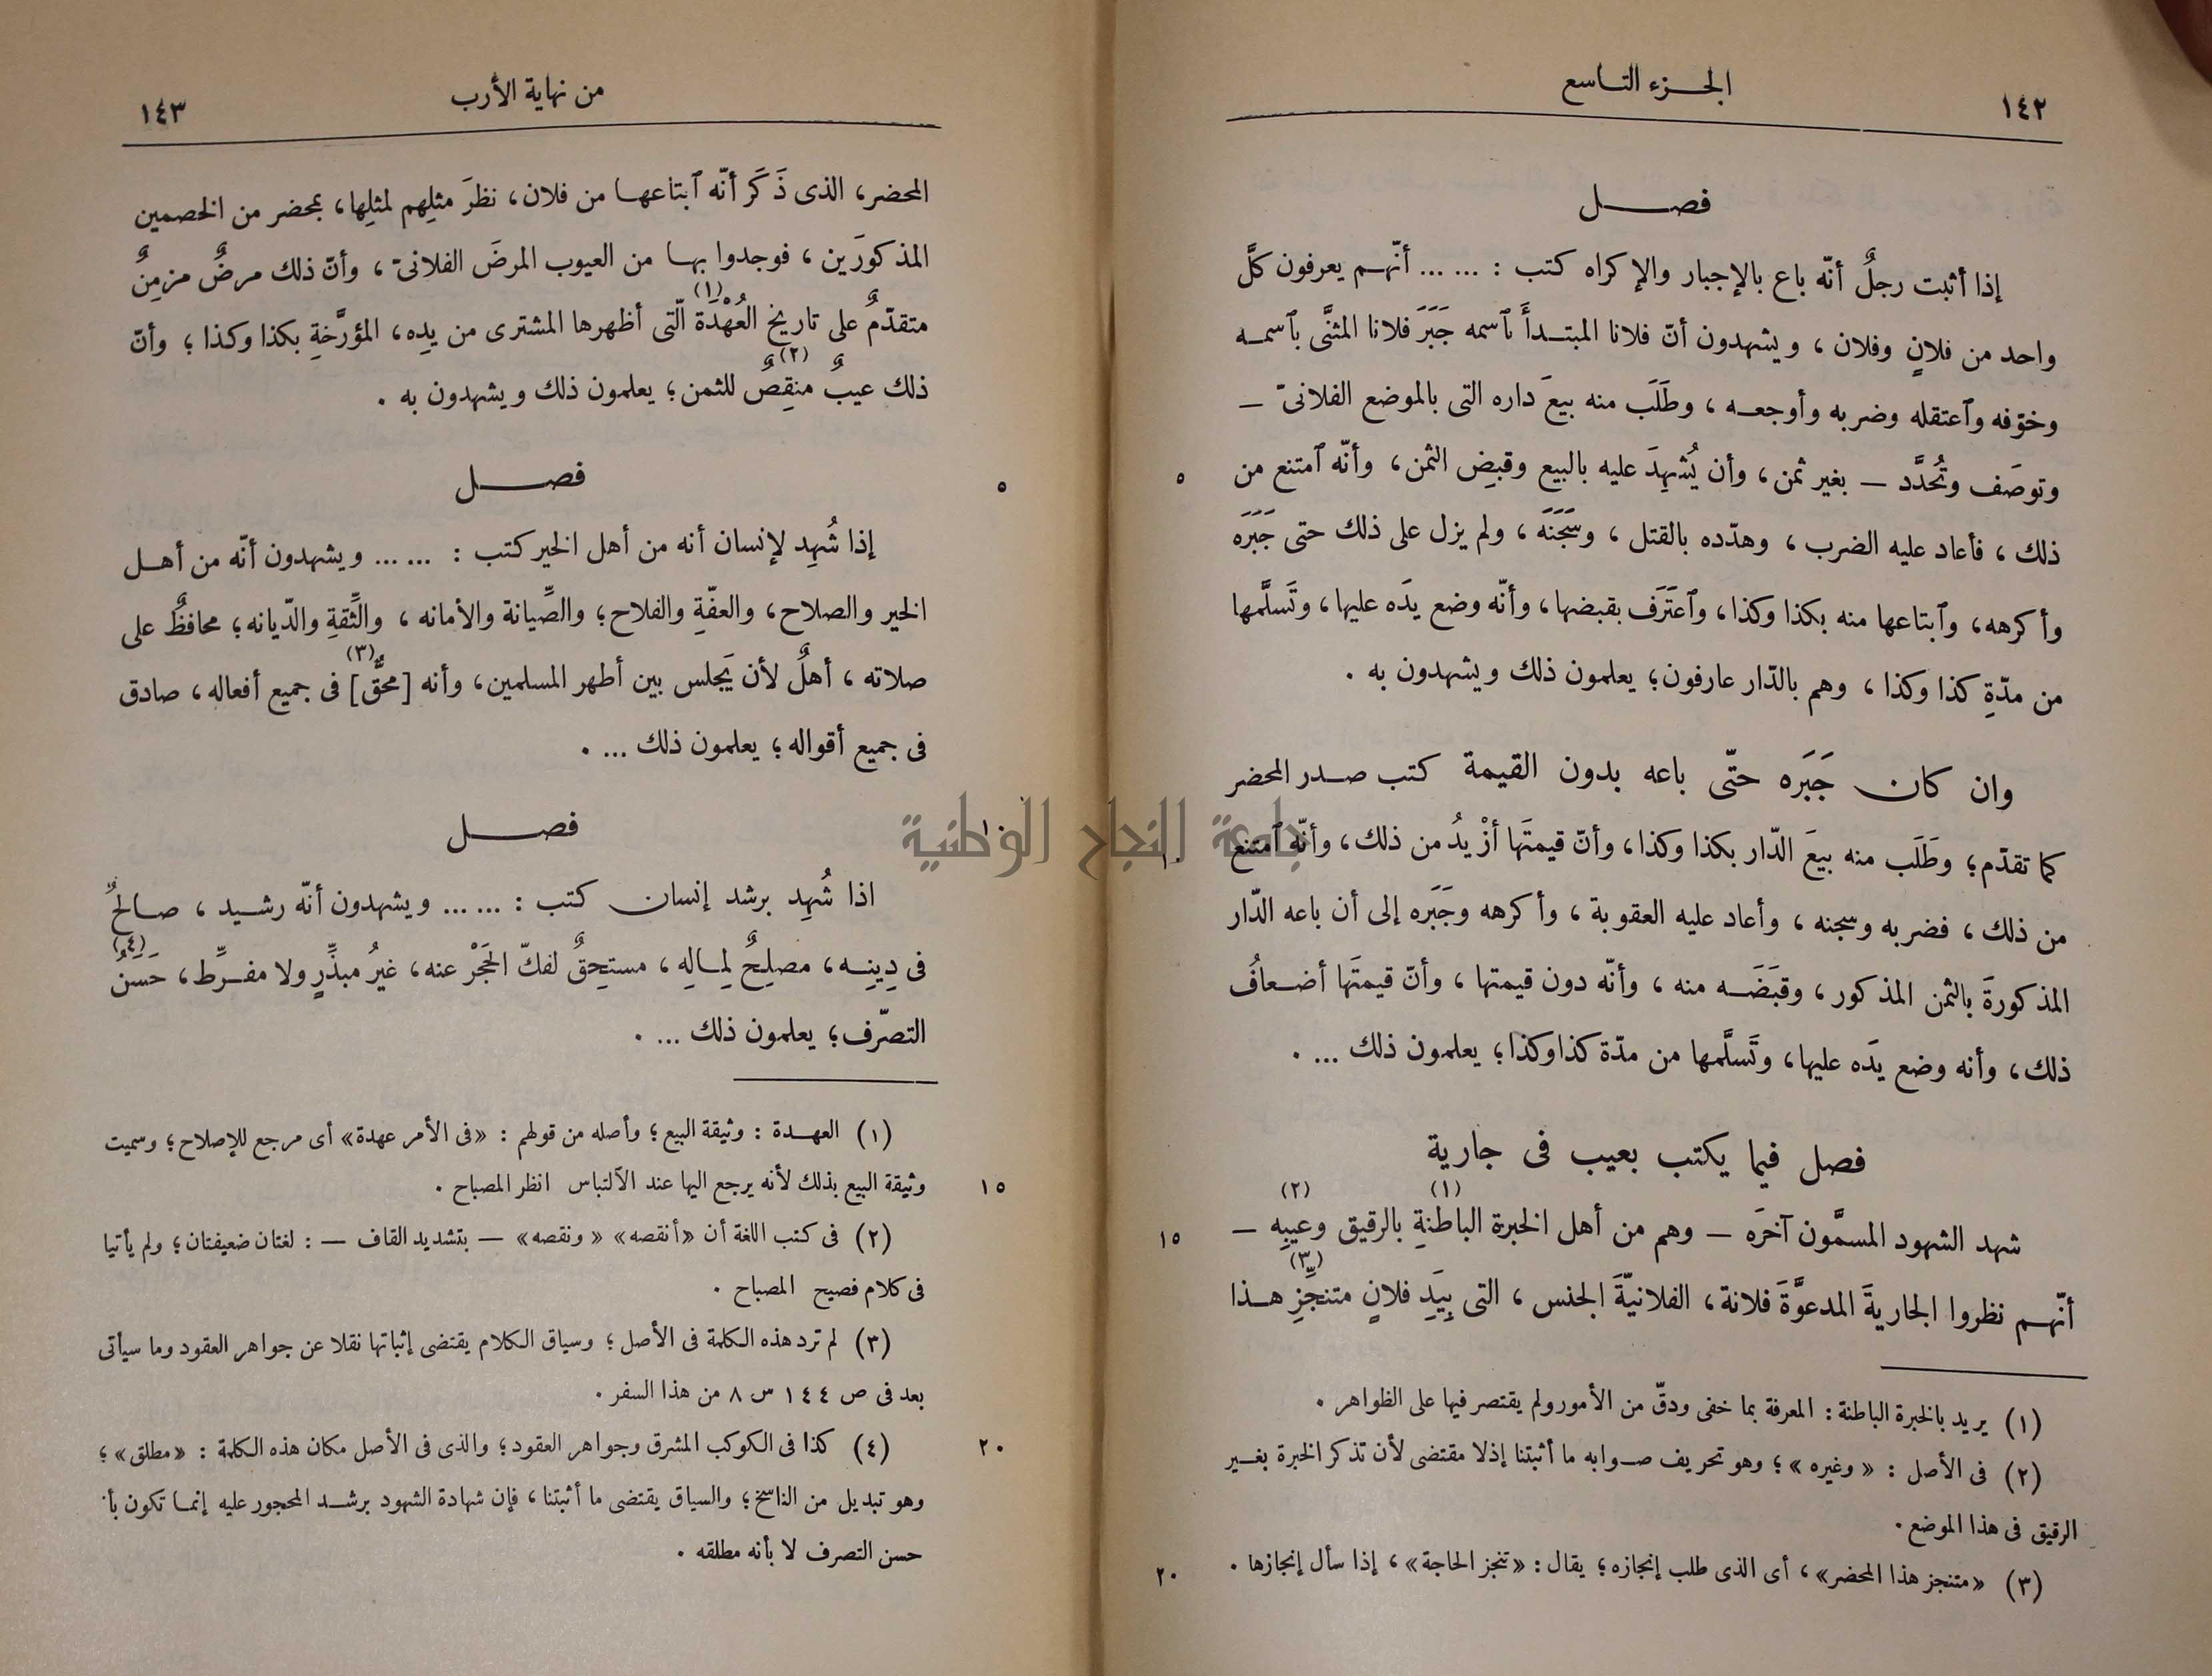 ١٤٢
الجزء التاسع
فصل
إذا أثبت رجلٌ أنّه باع بالإجبار والإكراه كتب : ... ... أنّهم يعرفون كلَّ
واحد من فلانٍ وفلان ، ويشهدون أنّ فلانا المبتدأَ بٱسمه جَبَرَ فلانا المثنَّى بٱسمه
وخوّفه وٱعتقله وضربه وأوجعه ، وطَلَب منه بيعَ داره التى بالموضع الفلانىّ —
وتوصَف وتُحدَّد — بغير ثمن ، وأن يُشهِدَ عليه بالبيع وقبضِ الثمن ، وأنّه ٱمتنع من
٥
ذلك ، فأعاد عليه الضرب ، وهدّده بالقتل ، وسَجَنَه ، ولم يزل على ذلك حتى جَبَرَه
وأكرهه ، وٱبتاعها منه بكذا وكذا ، وٱعتَرَف بقبضها ، وأنّه وضع يدَه عليها ، وتَسلَّمها
من مدّةِ كذا وكذا ، وهم بالدّار عارفون؛ يعلمون ذلك ويشهدون به .
وان كان جَبَره حتّى باعه بدون القيمة كتب صدر المحضر
كما تقدّم؛ وطَلَب منه بيعَ الدّار بكذا وكذا ، وأنّ قيمتَها أزْيدُ من ذلك ، وأنّه ٱمتنع
١٠
من ذلك ، فضربه وسجنه ، وأعاد عليه العقوبة ، وأكرهه وجَبَره إلى أن باعه الدّار
المذكورةَ بالثمن المذكور ، وقبَضَه منه ، وأنّه دون قيمتها ، وأنّ قيمتَها أضعافُ
ذلك ، وأنه وضع يدَه عليها ، وتَسلَّمها من مدّة كذا وكذا؛ يعلمون ذلك ... .
فصل فيما يكتب بعيب فى جارية
شهد الشهود المسمَّون آخرَه — وهم من أهل الخبرة الباطنةِ (١) بالرقيق وعيبِه (٢) —
١٥
أنّهم نظروا الجاريةَ المدعوَّةَ فلانة ، الفلانيّةَ الجنس ، التى بِيَدِ فلانٍ متنجِّزِ (٣) هذا
(١) يريد بالخبرة الباطنة : المعرفة بما خفى ودقّ من الأمور ولم يقتصر فيها على الظواهر .
(٢) فى الأصل : « وغيره » ؛ وهو تحريف صوابه ما أثبتنا إذلا مقتضى لأن تذكر الخبرة بغير
الرقيق فى هذا الموضع .
(٣) «متنجز هذا المحضر» ، أى الذى طلب إنجازه ؛ يقال : «تنجز الحاجة» ، إذا سأل إنجازها .
٢٠
من نهاية الأرب
١٤٣
المحضر ، الذى ذَكَر أنّه ٱبتاعها من فلان ، نظرَ مثلِهم لمثلِها ، بمحضر من الخصمين
المذكورَين ، فوجدوا بها من العيوب المرضَ الفلانىّ ، وأنّ ذلك مرضٌ مزمِنٌ
متقدّمٌ على تاريخ العُهْدَة (١) الّتى أظهرها المشترى من يدِه ، المؤرَّخةِ بكذا وكذا ؛ وأنّ
ذلك عيبٌ منقِصٌ (٢) للثمن ؛ يعلمون ذلك ويشهدون به .
فصل
٥
إذا شُهِد لإنسان أنه من أهل الخير كتب : ... ... ويشهدون أنّه من أهل
الخير والصلاح ، والعفّةِ والفلاح ؛ والصِّيانة والأمانه ، والثِّقةِ والدّيانه ؛ محافظٌ على
صلاته ، أهلٌ لأن يَجلس بين أطهر المسلمين ، وأنه [محقٌّ] (٣) فى جميع أفعاله ، صادق
فى جميع أقواله ؛ يعلمون ذلك ... .
فصل
١٠
اذا شُهِد برشد إنسان كتب : ... ... ويشهدون أنّه رشيد ، صالحٌ
فى دِينِه ، مصلِحٌ لِمالِهِ ، مستحِقٌ لفكّ الحَجْر عنه ، غيرُ مبذِّرٍ ولا مفرِّط ، حَسَنُ (٤)
التصرّف ؛ يعلمون ذلك ... .
(١) العهدة : وثيقة البيع ؛ وأصله من قولهم : «فى الأمر عهدة» أى مرجع للإصلاح ؛ وسميت
وثيقة البيع بذلك لأنه يرجع اليها عند الآلتباس انظر المصباح .
١٥
(٢) فى كتب اللغة أن «أنقصه» « ونقصه» — بتشديد القاف — : لغتان ضعيفتان ؛ ولم يأتيا
فى كلام فصيح المصباح .
(٣) لم ترد هذه الكلمة فى الأصل ؛ وسياق الكلام يقتضى إثباتها نقلا عن جواهر العقود وما سيأتى
بعد فى ص ١٤٤ س ٨ من هذا السفر .
(٤) كذا فى الكوكب المشرق وجواهر العقود ؛ والذى فى الأصل مكان هذه الكلمة : «مطلق» ؛
٢٠
وهو تبديل من الناسخ ؛ والسياق يقتضى ما أثبتنا ، فإن شهادة الشهود برشد المحجور عليه إنما تكون بأ
حسن التصرف لا بأنه مطلقه .
جامعة النجاح الوطنية